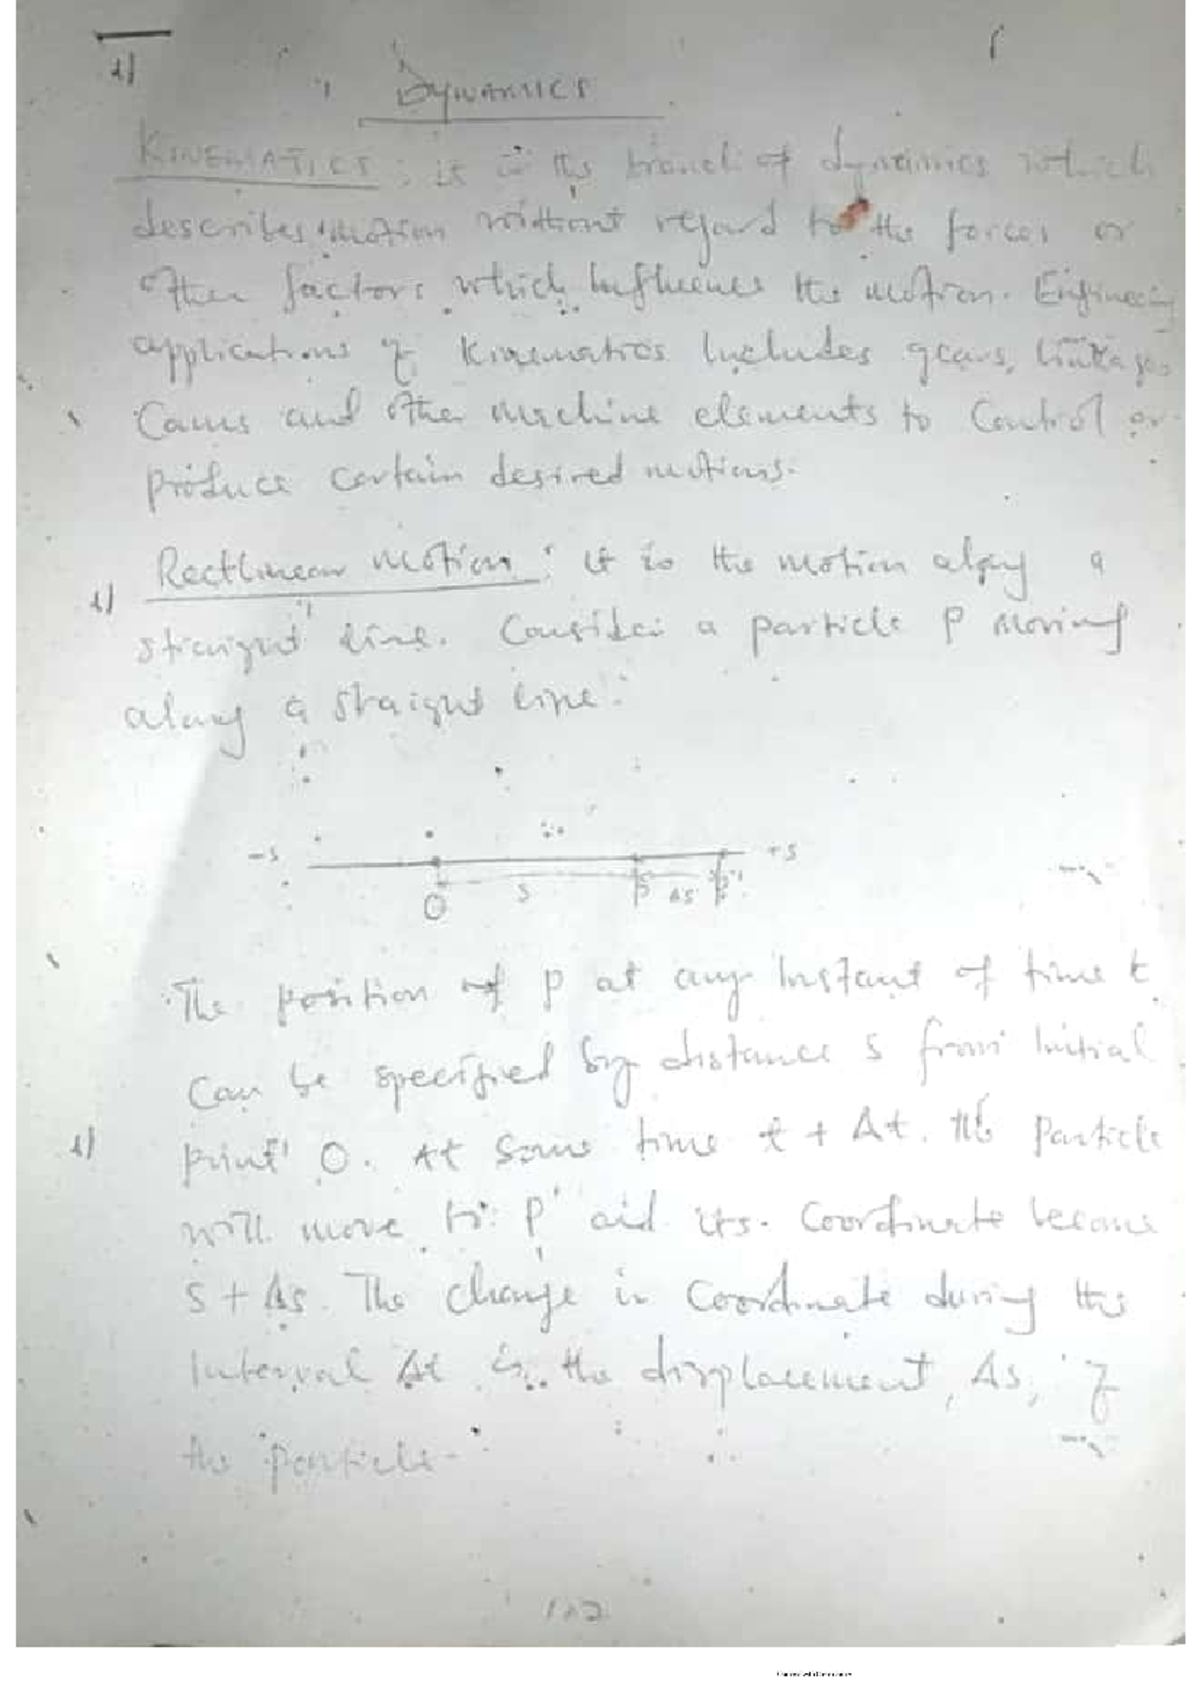 DYNAMICS
KINEMATICS: it is the branch of dynamics which
describes motion without regard to the forces or
other factors which influence the motion. Engineering
applications of kinematics includes gears, linkages
Cams and other machine elements to control or
produce certain desired motions.
Rectlinear motion: it is the motion along a
straight line. Consider a particle P moving
along a straight line.
-S +S
O S P Δs P'
The position of P at any instant of time t
can be specified by distance s from initial
point O. At some time t + Δt. the particle
will move to P' and its coordinate become
s + Δs. The change in coordinate during the
interval Δt is the displacement, Δs, of
the particle.